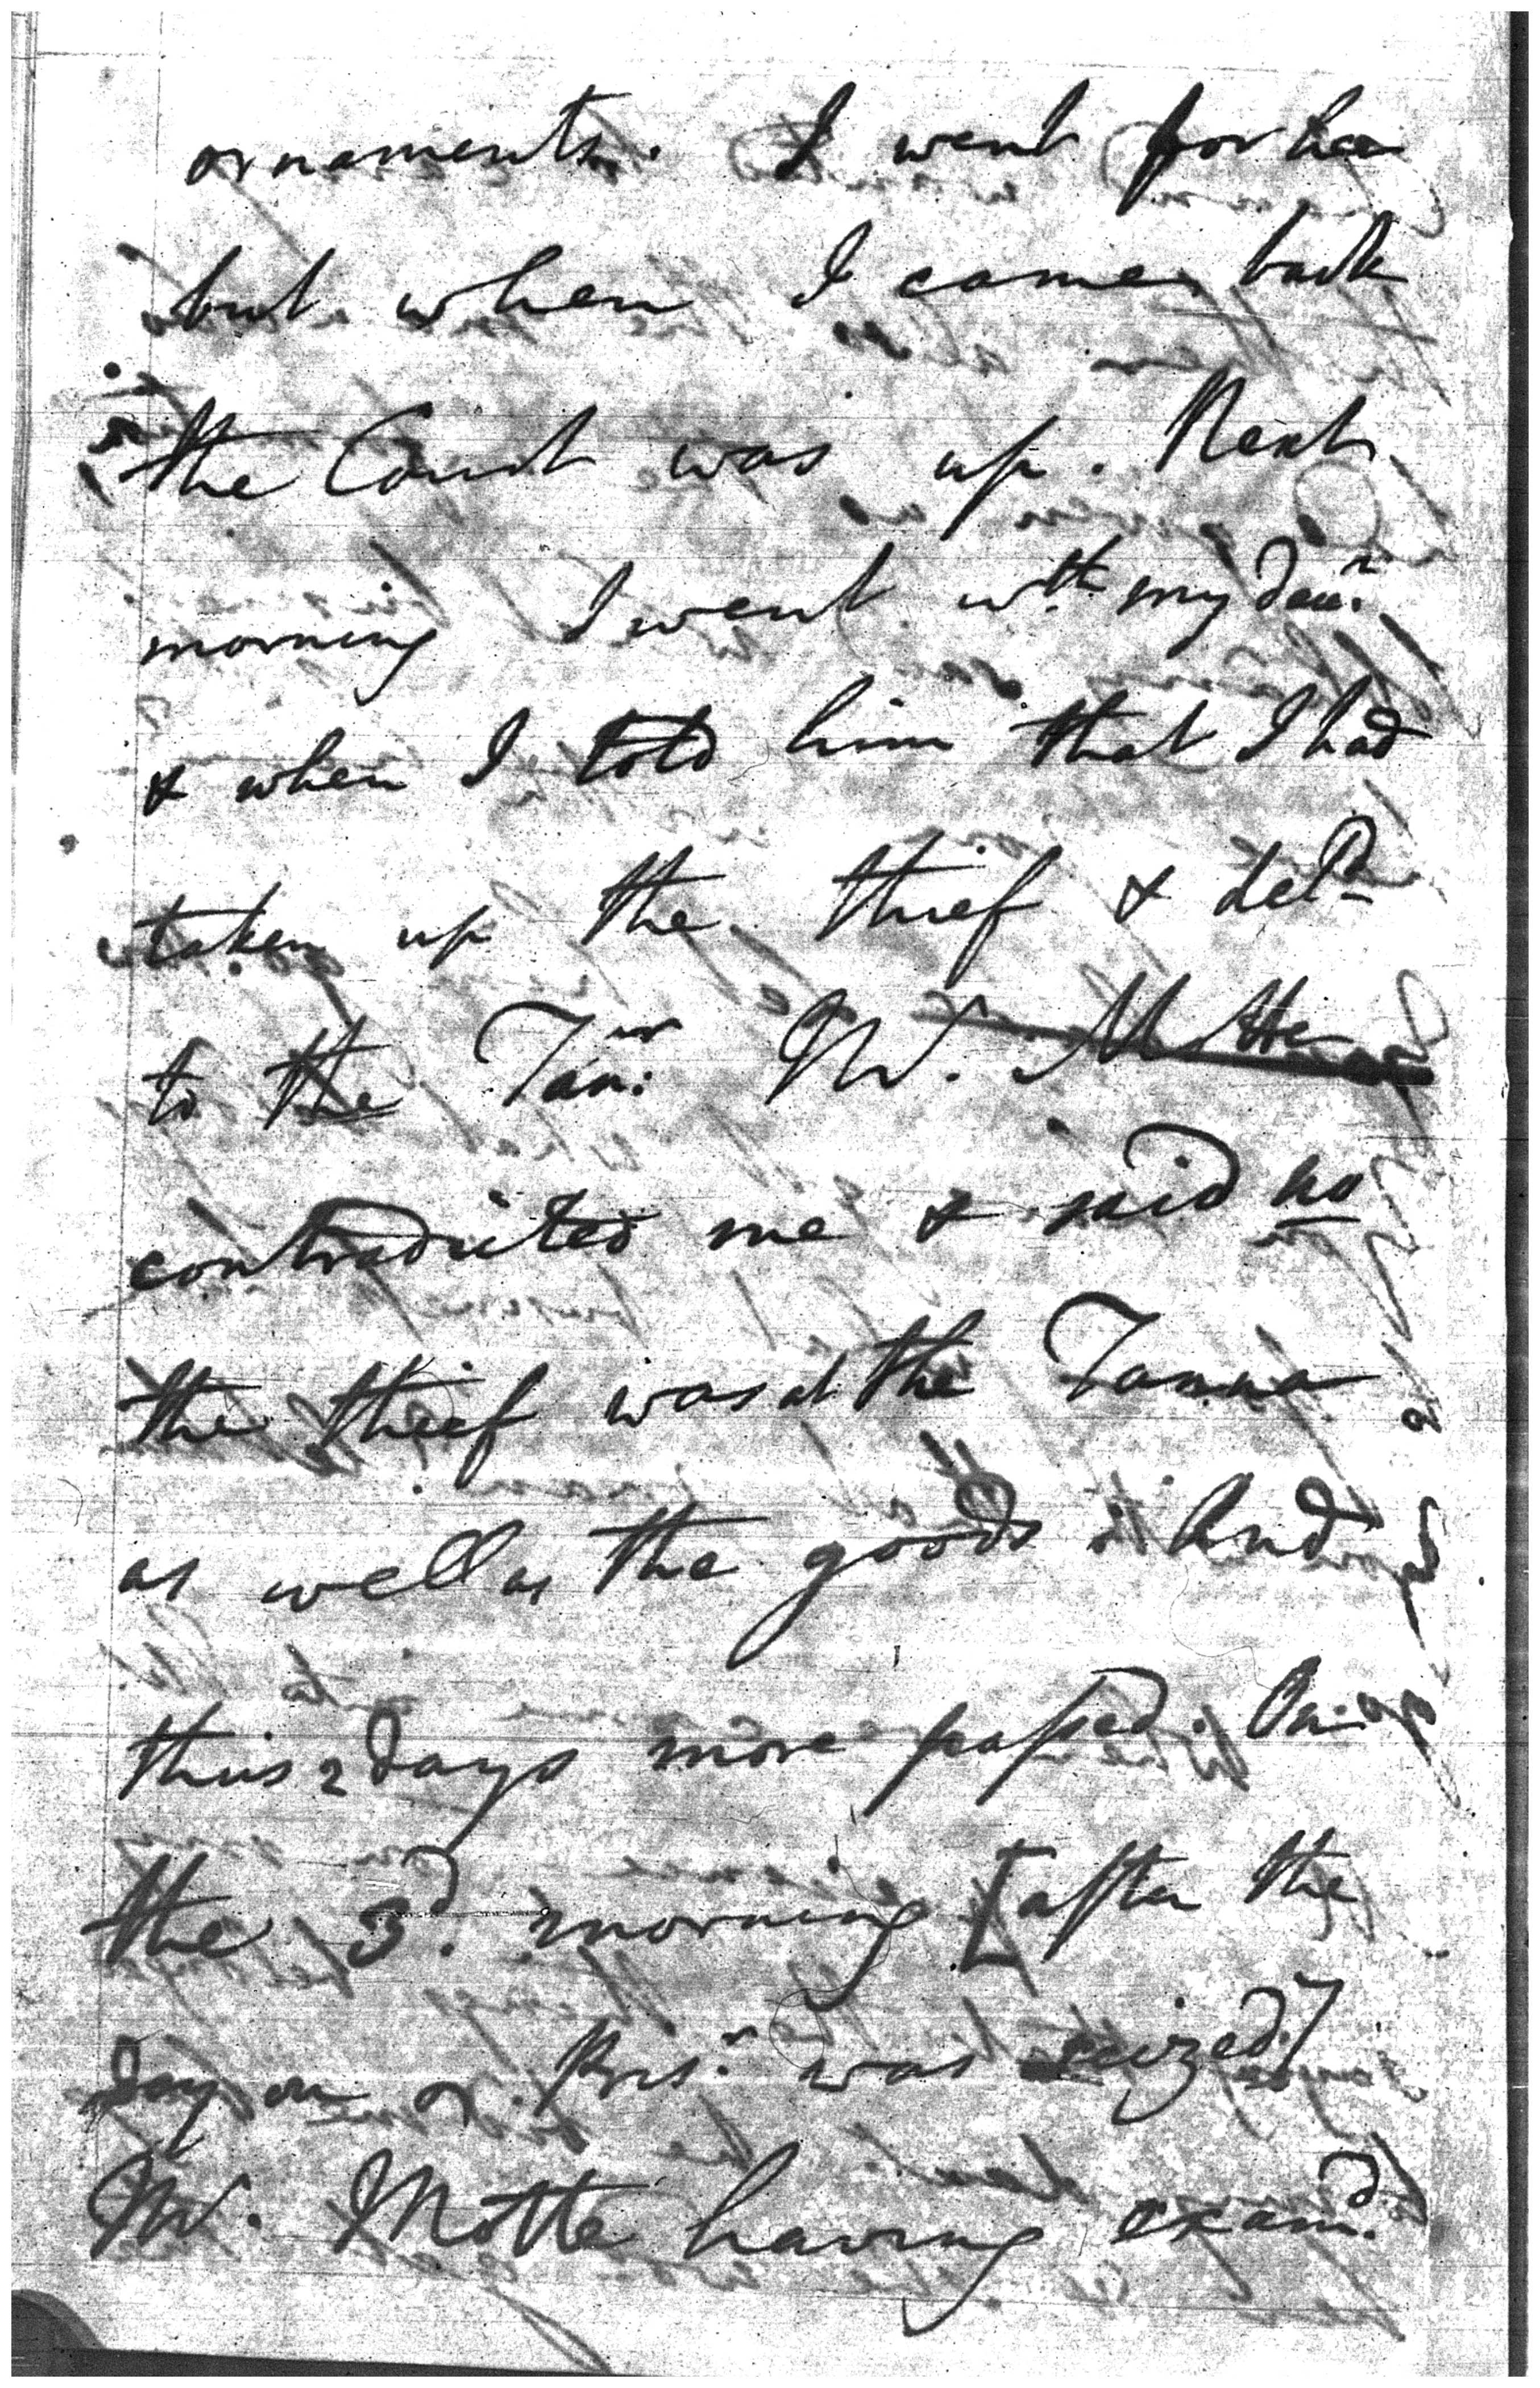 ornaments. I went for her
but when I came back
the Court was up. Next
morning I went wth. my daur.
& when I told him that I had
taken up the thief & deld.
to the Tanr. W. Motte
contradicted me & said no
the thief was at the Tanna
as well as the goods. And
thus 2 days more passed. On
the 3d. morning [after the
day on wh Prisr. was seized]
W. Motte having examd.